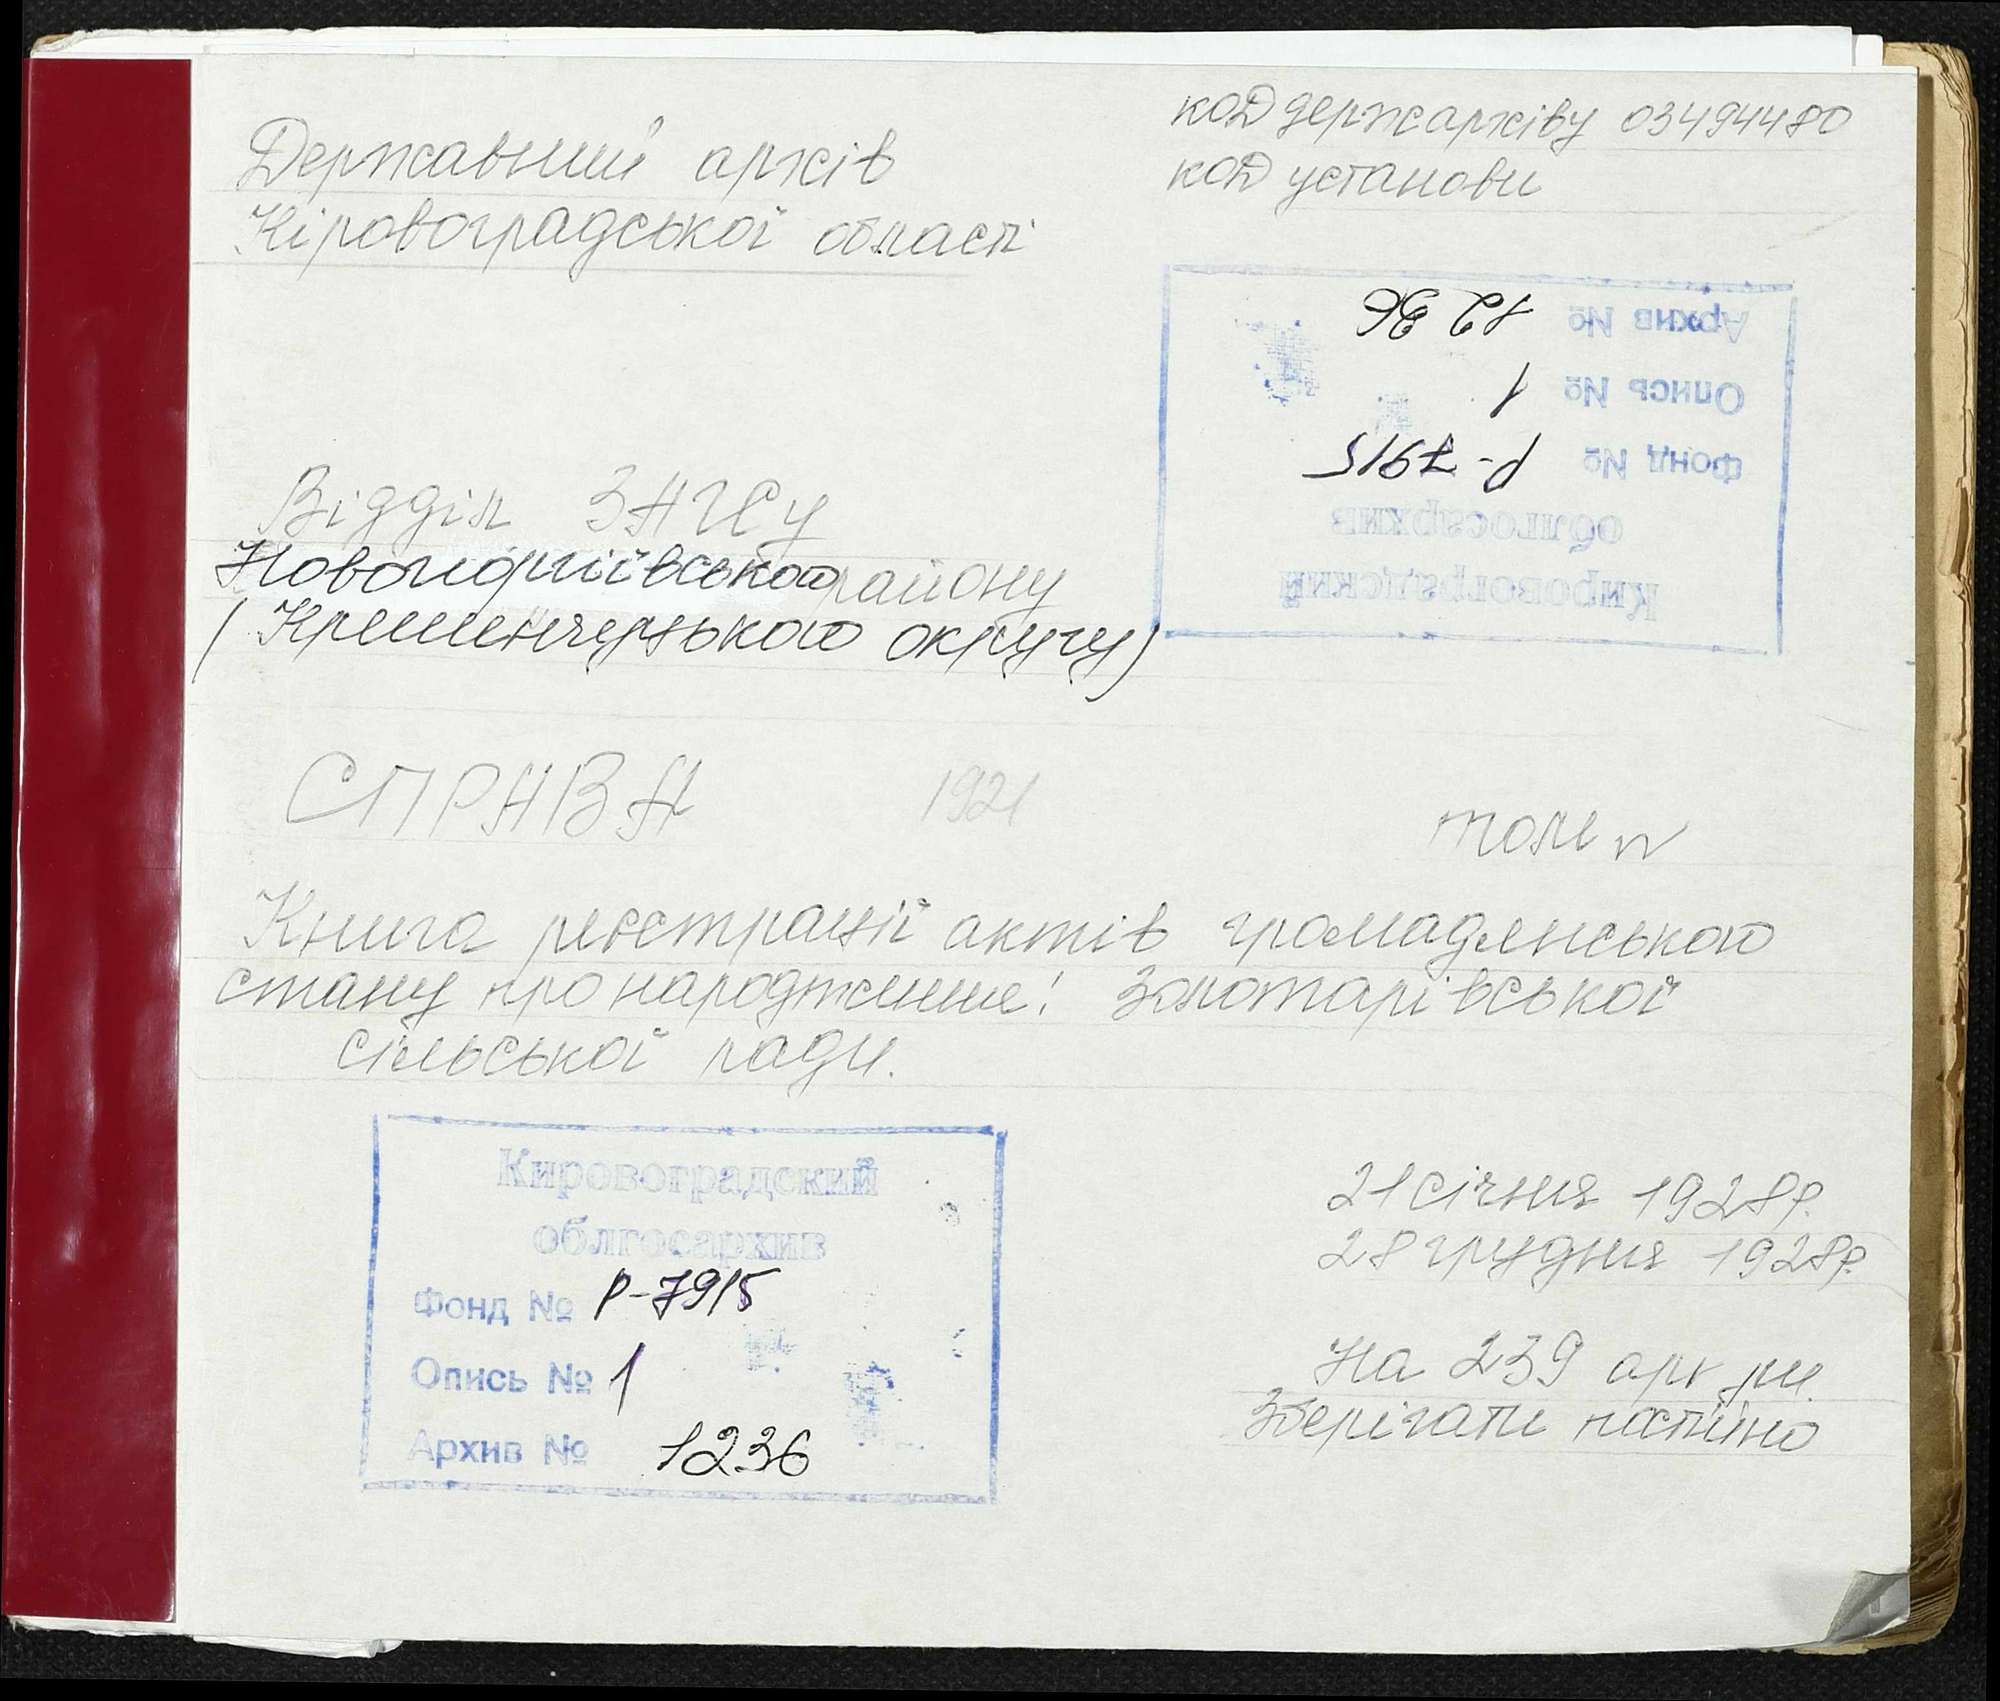 Державний архів
Кіровоградської області
код держархіву 03494480
код установи
Архив № 1236
Опись № 1
Фонд № Р-7915
облгосархив
Кировоградский
Відділ ЗАГСу
Новогеоргіївського району
(Кременчуцького округу)
СПРАВА 1921 том
Книга реєстрації актів громадянського
стану про народження: Золотарівської
сільської ради.
Кировоградский
облгосархив
Фонд № Р-7915
Опись № 1
Архив № 1236
21 січня 1928р.
28 грудня 1928р.
На 239 арк
Зберігати постійно